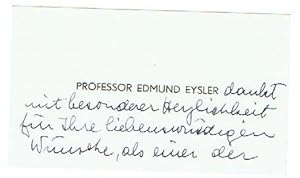 PROFESSOR EDMUND EYSLER dankt
mit besonderer Herzlichkeit
für Ihre liebenswürdigen
Wünsche, als einer der